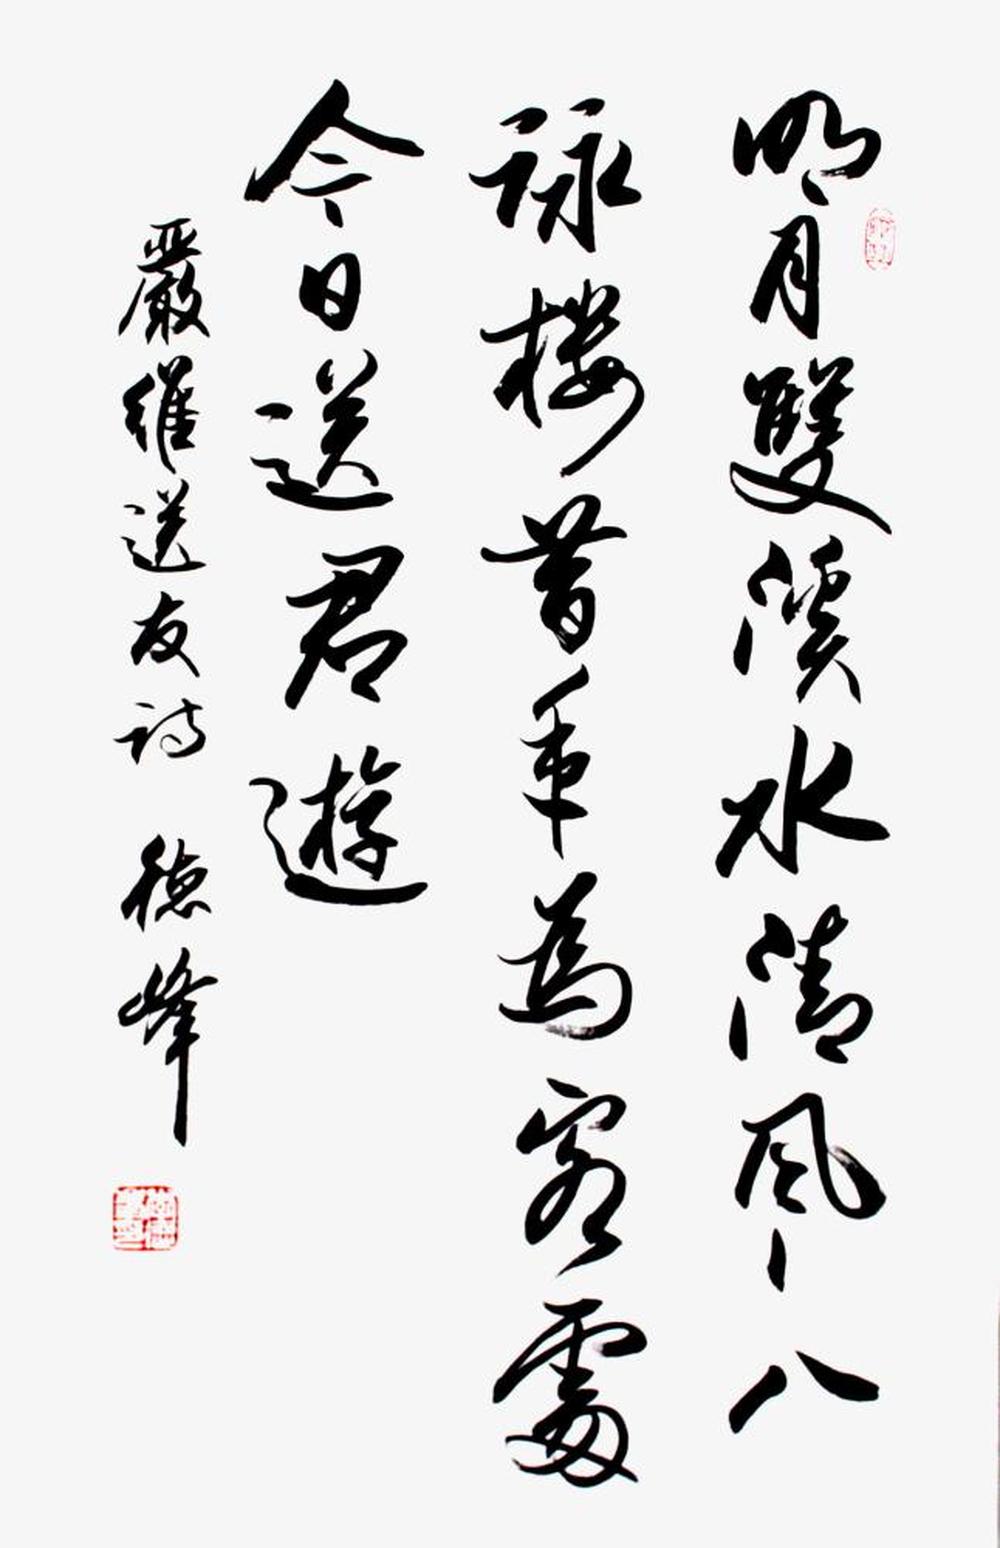 明月雙溪水清風八
詠樓昔年為客處
今日送君遊
嚴維送友詩 德峰